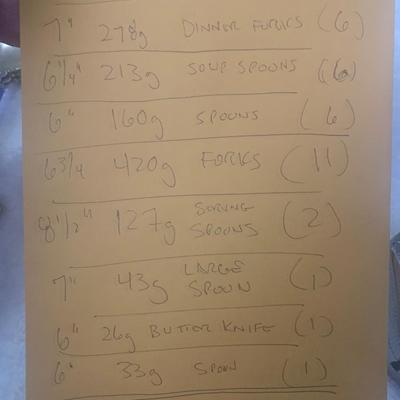 7" 278g DINNER FORKS (6)
6 1/4" 213g SOUP SPOONS (6)
6" 160g SPOONS (6)
6 3/4 420g FORKS (11)
8 1/2" 127g SERVING SPOONS (2)
7" 43g LARGE SPOON (1)
6" 26g BUTTER KNIFE (1)
6" 33g SPOON (1)